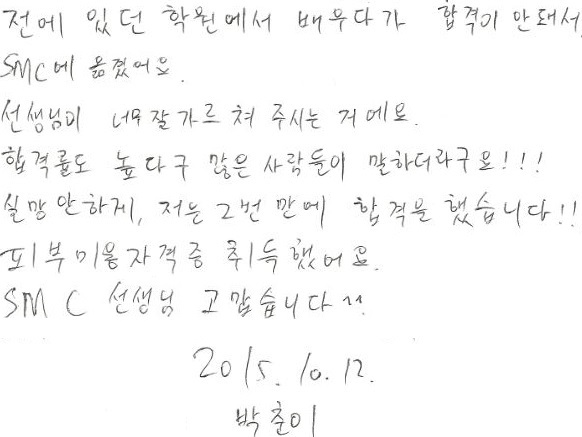 전에 있던 학원에서 배우다가 합격이 안돼서,
SMC에 옮겼어요.
선생님이 너무 잘 가르쳐 주시는 거에요.
합격률도 높다구 많은 사람들이 말하더라구요!!!
실망안하게, 저는 2번 만에 합격을 했습니다!!
피부미용자격증 취득했어요.
SMC 선생님 고맙습니다^^
2015. 10. 12.
박춘이